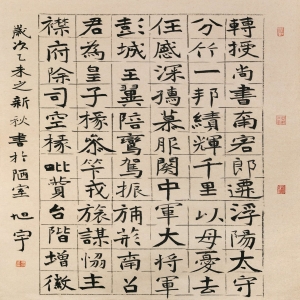 轉授尚書南名郎遷浮陽太守
分竹一邦績輝千里以母憂去
任慼深孺慕服闋中軍大將軍
彭城王翼陪鸞斾於南召
君為皇子椽參竿戎旅謀協主
襟府除司空椽毗贊台階增徽
歲次乙未之新秋書於陋室旭宇